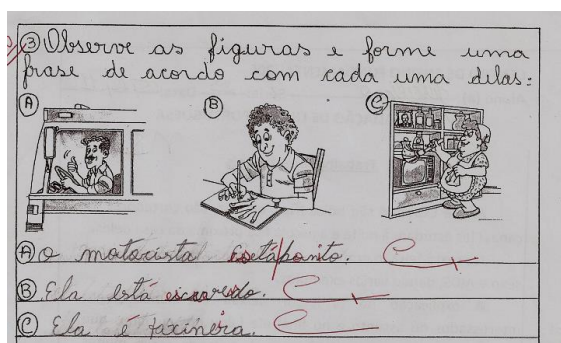 ③ Observe as figuras e forme uma
frase de acordo com cada uma delas:
A B C
A O motorista está ponto.
B Ela está escrevedo.
C Ela é faxineira.